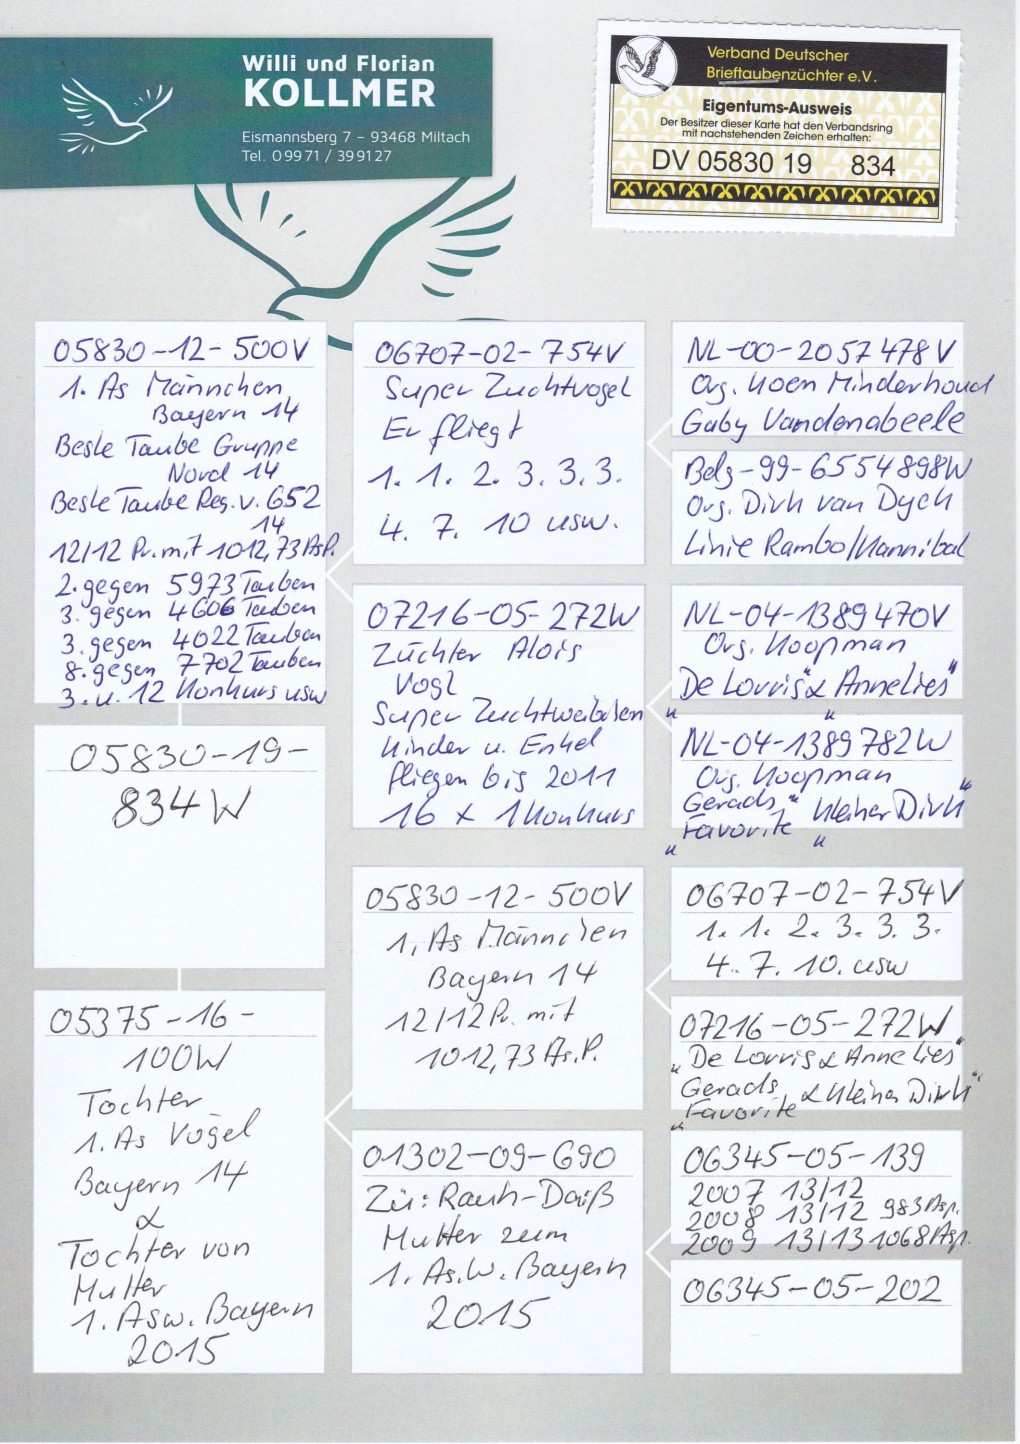 Willi und Florian
KOLLMER
Eismannsberg 7 – 93468 Miltach
Tel. 0 99 71 / 39 91 27
Verband Deutscher
Brieftaubenzüchter e.V.
Eigentums-Ausweis
Der Besitzer dieser Karte hat den Verbandsring
mit nachstehenden Zeichen erhalten:
DV 05830 19 834
05830-12-500V
1. As Männchen
Bayern 14
Beste Taube Gruppe
Nord 14
Beste Taube Reg. v. 652
14
12/12 Pr. mit 1012,73 As P.
2. gegen 5973 Tauben
3. gegen 4606 Tauben
3. gegen 4022 Tauben
8. gegen 7702 Tauben
3. u. 12 Konkurs usw
05830-19-
834W
05375-16-
100W
Tochter
1. As Vogel
Bayern 14
&
Tochter von
Mutter
1. Asw. Bayern
2015
06707-02-754V
Super Zuchtvogel
Er fliegt
1. 1. 2. 3. 3. 3.
4. 7. 10 usw.
07216-05-272W
Züchter Alois
Vogl
Super Zuchtweibchen
Kinder u. Enkel
fliegen bis 2011
16 x 1 Konkurs
05830-12-500V
1. As Männchen
Bayern 14
12/12 Pr. mit
1012,73 As.P.
01302-09-690
Zü: Rauh-Daiß
Mutter zum
1. As.W. Bayern
2015
NL-00-2057478V
Org. Koen Minderhoud
Gaby Vandenabeele
Belg-99-6554898W
Org. Dirk van Dyck
Linie Rambo/Kannibal
NL-04-1389470V
Org. Koopman
"De Lorris" & "Annelies"
NL-04-1389782W
Org. Koopman
Gerads "Kleiner Dirk"
"Favorite"
06707-02-754V
1. 1. 2. 3. 3. 3.
4. 7. 10. usw
07216-05-272W
"De Lorris & Annelies"
Gerads & Kleiner Dirk"
"Favorite
06345-05-139
2007 13/12
2008 13/12 983 Asp.
2009 13/13 1068 Asp.
06345-05-202